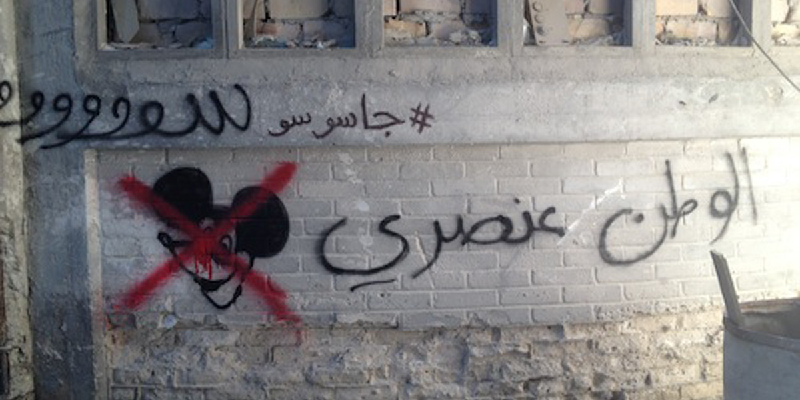 #جاسوسو سوووووو
الوطن عنصري